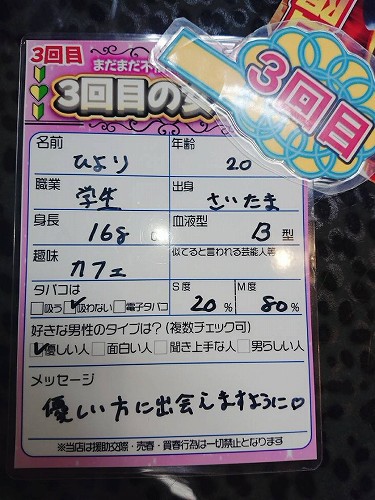 3回目
まだまだ不
3回目の
3回目
名前 ひより 年齢 20
職業 学生 出身 さいたま
身長 168 血液型 B 型
趣味 カフェ 似てると言われる芸能人等
タバコは S度 M度
吸う 吸わない 電子タバコ 20% 80%
好きな男性のタイプは?(複数チェック可)
優しい人 面白い人 聞き上手な人 男らしい人
メッセージ
優しい方に出会えますように♡
※当店は援助交際・売春・買春行為は一切禁止となります